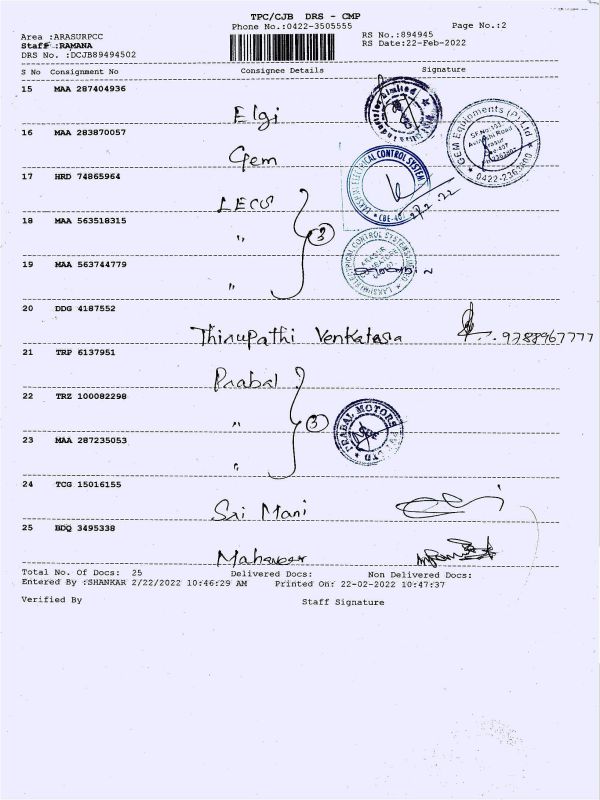 TPC/CJB DRS - CMP
Phone No.:0422-3505555 Page No.:2
Area :ARASURPCC RS No.:894945
Staff :RAMANA RS Date:22-Feb-2022
DRS No. :DCJB89494502
S No Consignment No Consignee Details Signature
15 MAA 287404936
Elgi
16 MAA 283870057
Gem
GEM Equipments (P) Ltd
SF.No:103
Avinashi Road
Arasur
0422-2363800
17 HRD 74865964
LECS
LAKSHMI ELECTRICAL CONTROL SYSTEM
CBE-407
18 MAA 563518315
〃 3
19 MAA 563744779
〃
20 DDG 4187552
Thirupathi Venkatasa 9788967777
21 TRP 6137951
Prabal
22 TRZ 100082298
〃 3
PRABAL MOTORS PVT LTD
23 MAA 287235053
〃
24 TCG 15016155
Sai Mani
25 BDQ 3495338
Mahaveer
Total No. Of Docs: 25 Delivered Docs: Non Delivered Docs:
Entered By :SHANKAR 2/22/2022 10:46:29 AM Printed On: 22-02-2022 10:47:37
Verified By Staff Signature